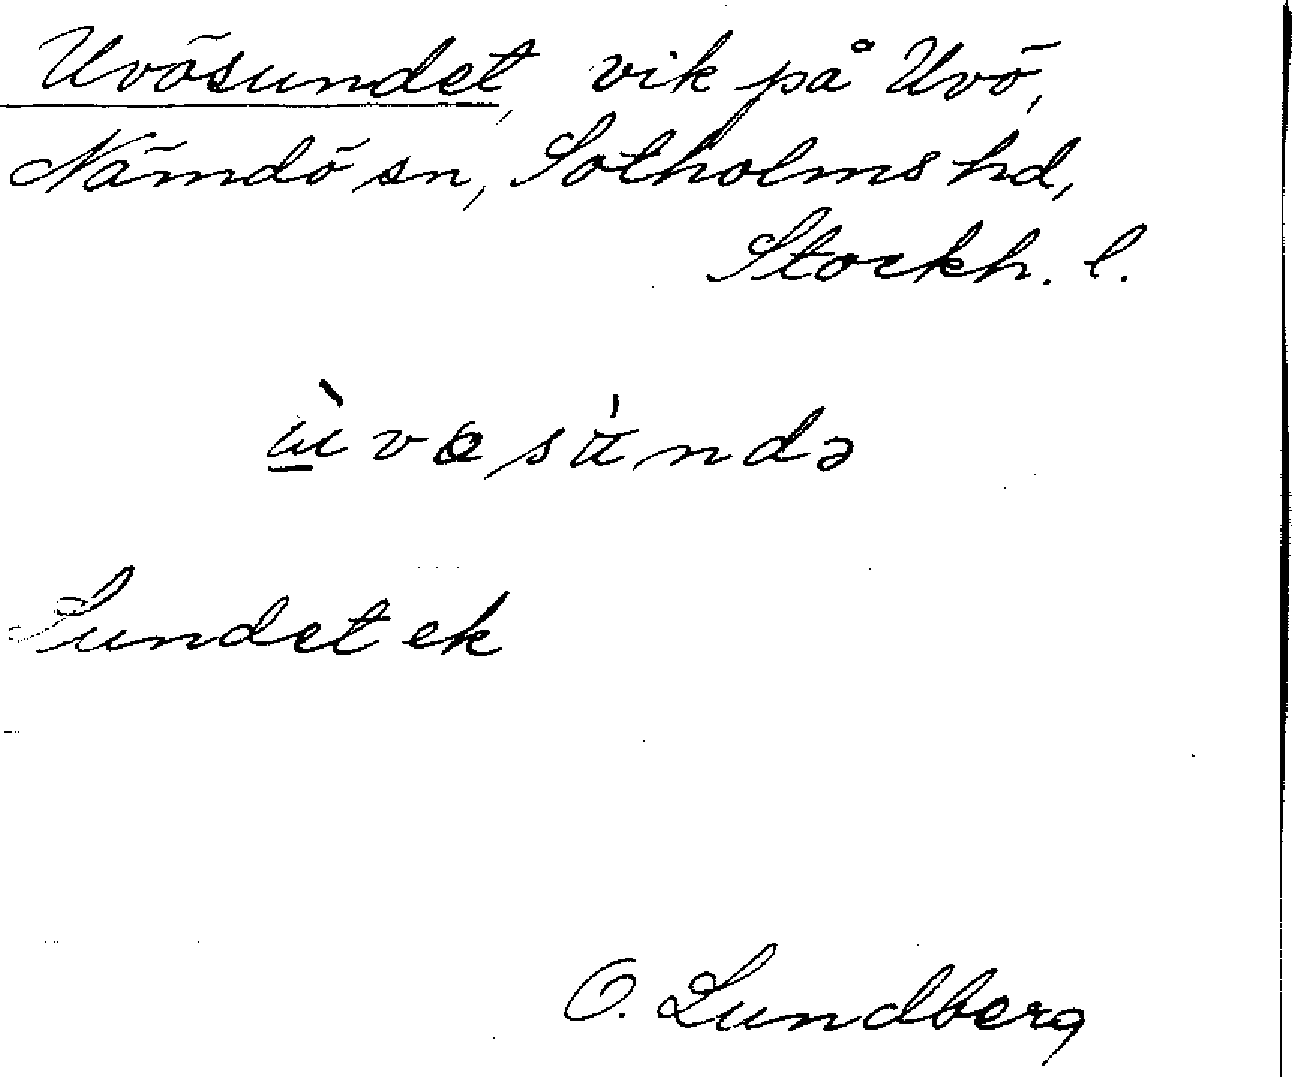 Uvösundet, vik på Uvö,
Nämdö sn, Sotholms hd,
Stockh. l.
Sundet ek
O. Lundberg